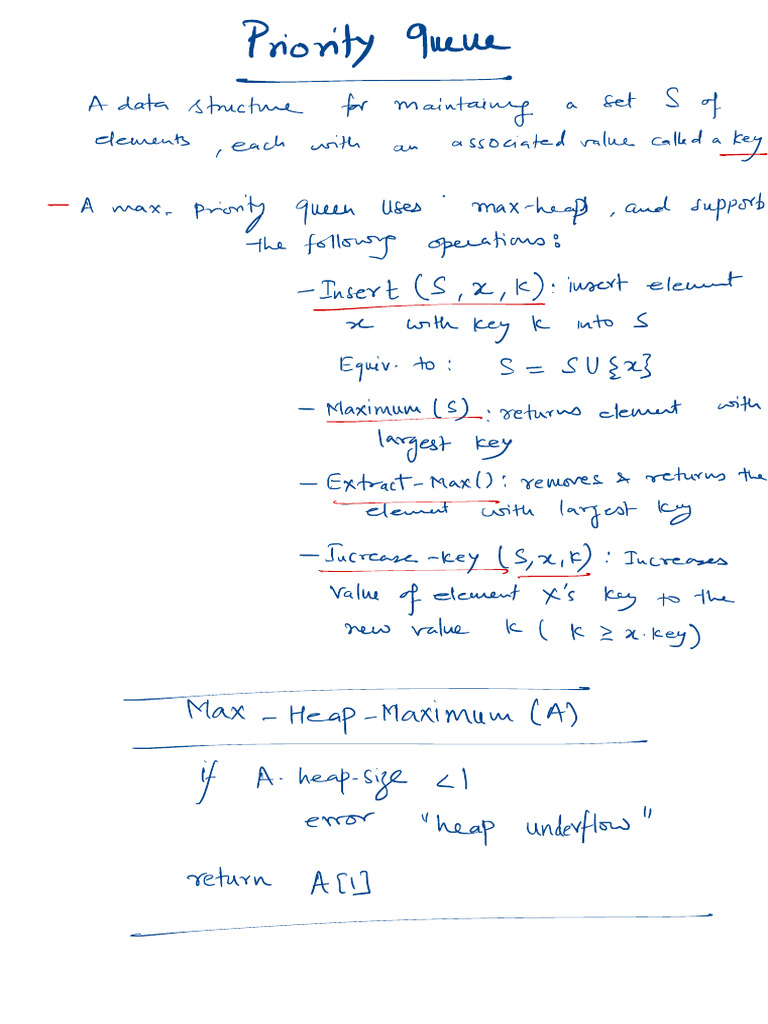 Priority Queue
A data structure for maintaining a set S of
elements, each with an associated value called a key
- A max-priority queen uses max-heap, and supports
the following operations:
- Insert (S, x, k): insert element
x with key k into S
Equiv. to: S = S ∪ {x}
- Maximum (S): returns element with
largest key
- Extract-Max(): removes & returns the
element with largest key
- Increase-key (S, x, k): Increases
value of element X's key to the
new value k (k ≥ x.key)
Max-Heap-Maximum (A)
if A.heap-size < 1
error "heap underflow"
return A[1]